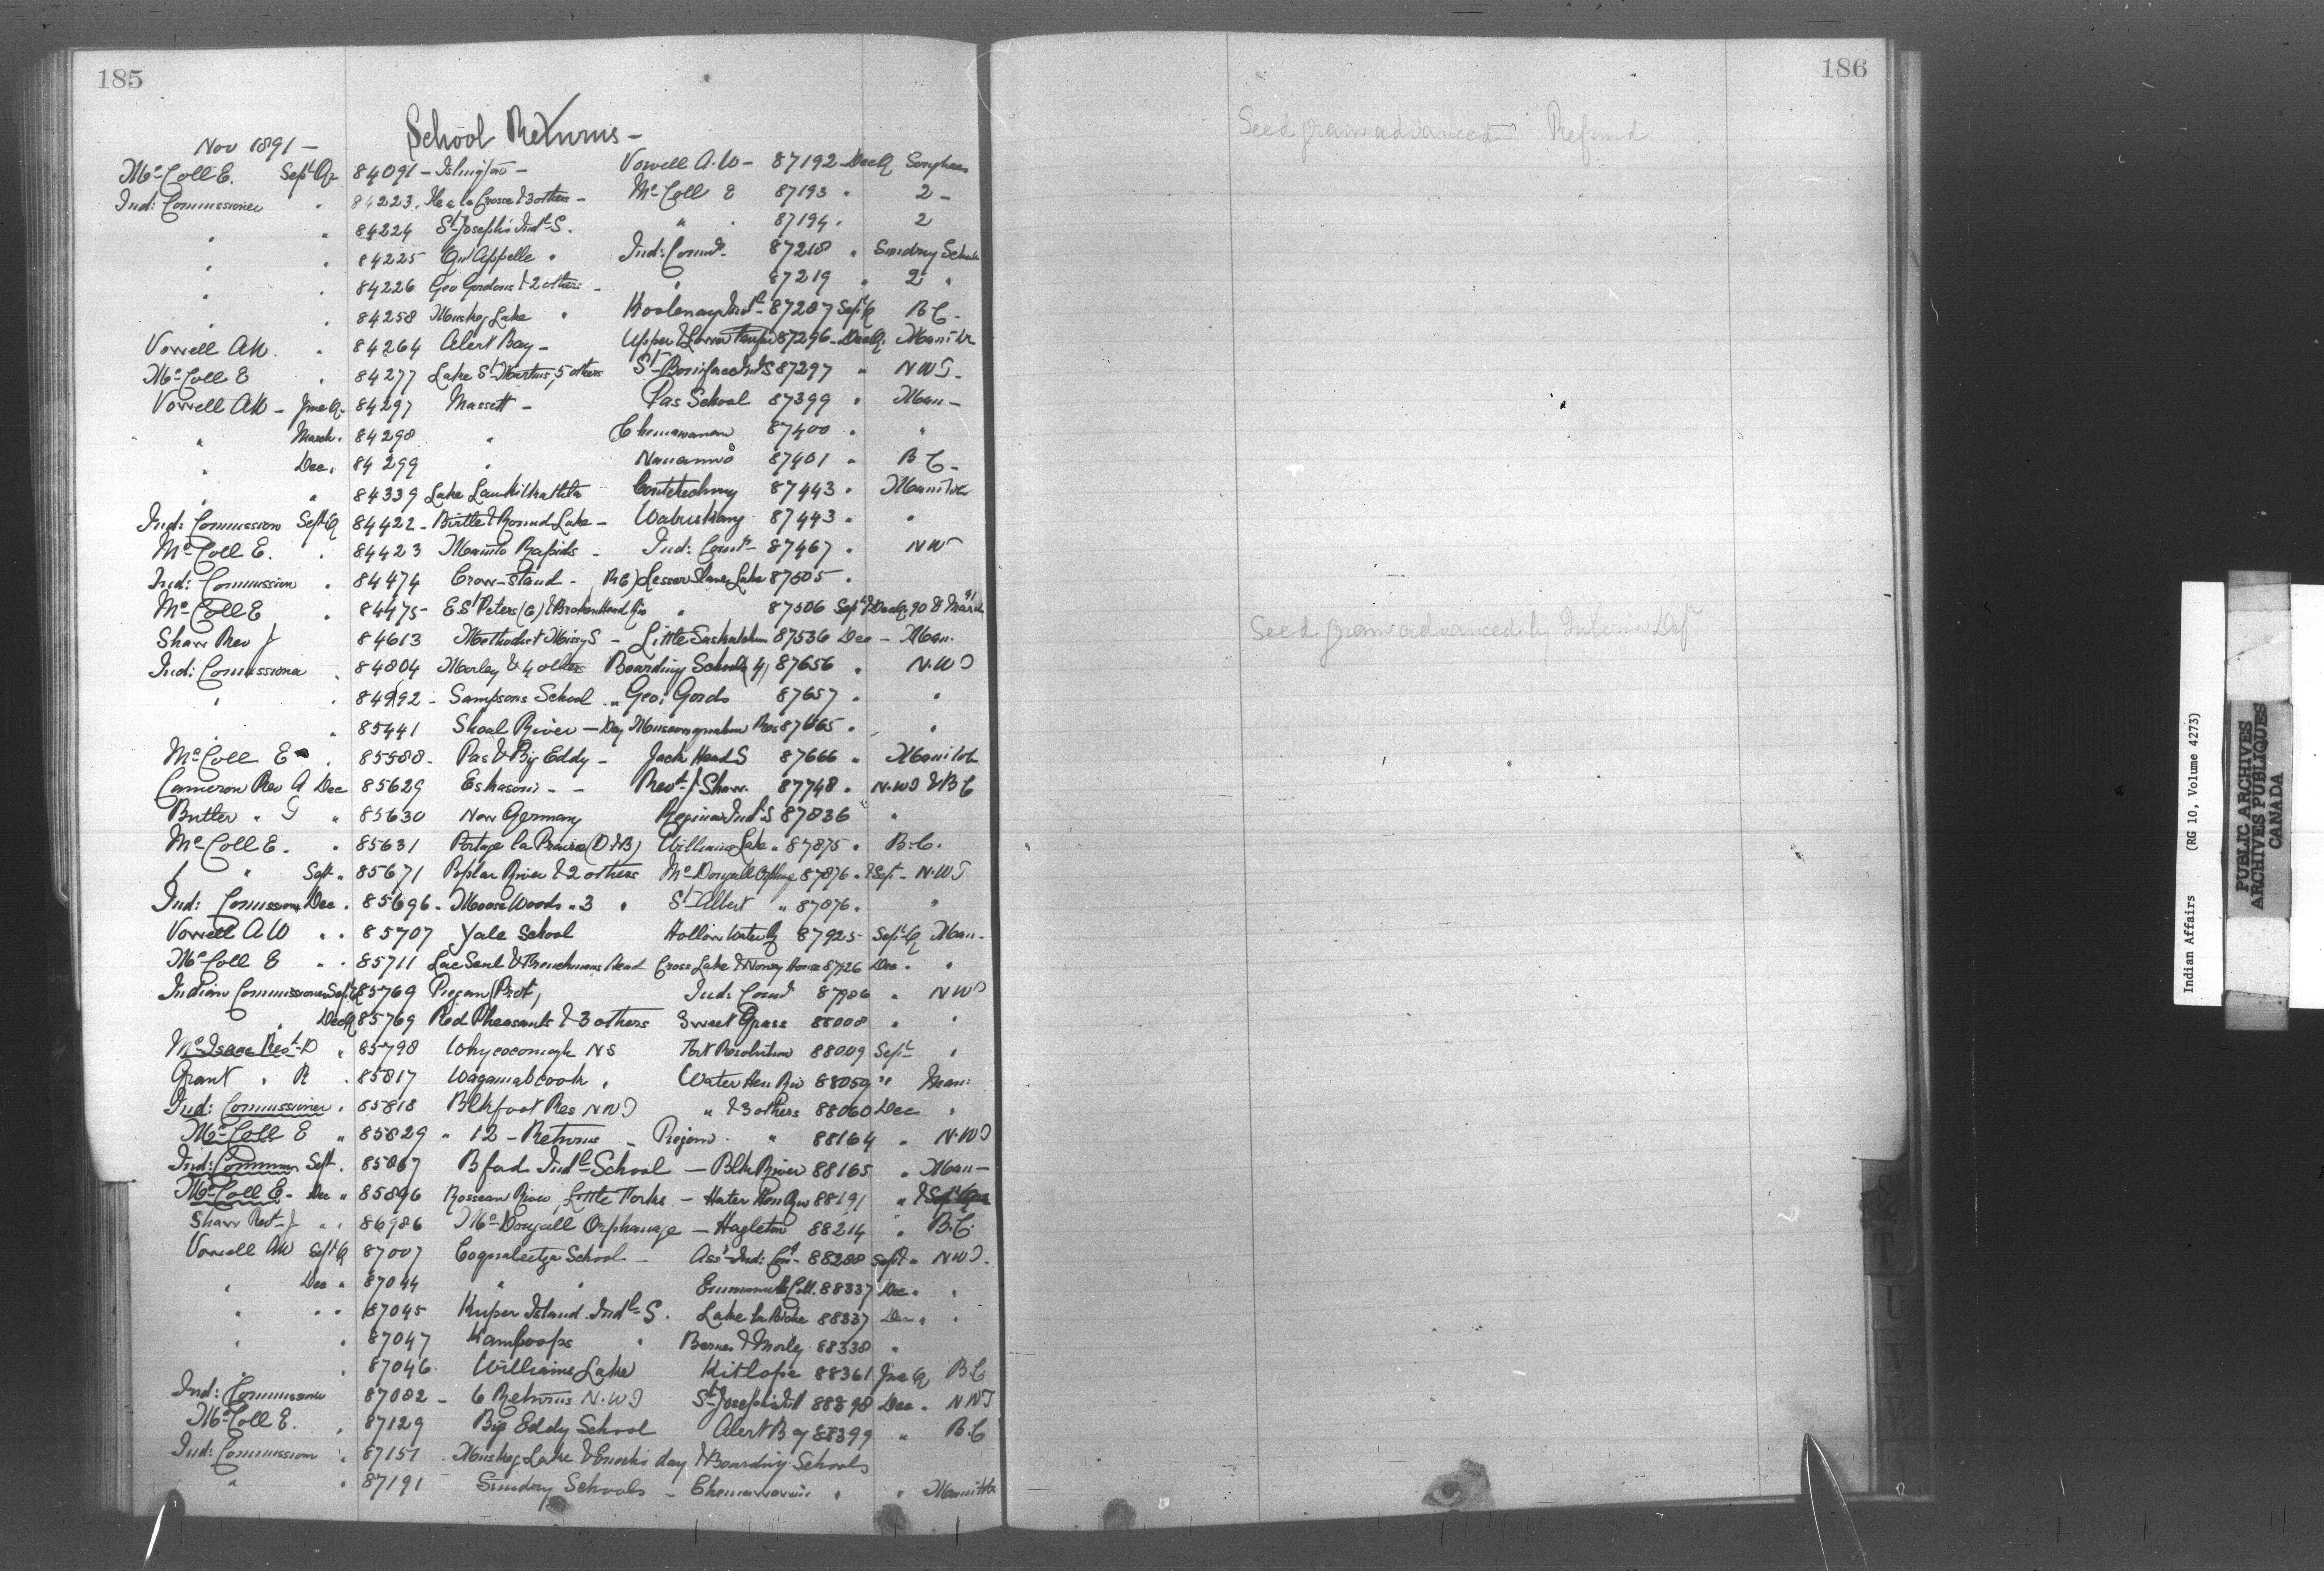 185
School Returns -
Nov 1891 -
McColl E. Sept Qr 84091 - Islington - Vowell A.W - 87192 - Dec Q
Ind: Commissioner " 84223. Ile a la Crosse & 3 others - McColl E 87193 " 2 -
" " 84224 St Joseph's Indl S. " " 87194 " 2
" " 84225 Qu'Appelle " Ind: Commr - 87218 " Sundry Schools
" " 84226 Geo Gordons & 2 others - " 87219 " 2 "
" " 84258 Muskeg Lake " Kootenay Indl - 87287 Sept Q B C -
Vowell AW. " 84264 Alert Bay - Upper & Lower 87296 - Dec Q.
McColl E " 84277 Lake St Martins, 5 others St Boniface Ind S 87297 " N W T -
Vowell AW - June Q - 84297 Massett - Pas School 87399 " Man -
" March " 84298 " Chemawawin 87400 " "
" Dec " 84299 " Nanaimo 87401 " B C -
" " 84339 Lake 87443 " Manitoba
Ind: Commission Sept Q 84422 - Birtle & Round Lake - Wabuskang 87443 " "
McColl E. " 84423 Manito Rapids - Ind: Comr - 87467 " N W
Ind: Commission " 84474 Crow-stand - (RC) Lesser Slave Lake 87505 "
McColl E " 84475 - E St Peters (E) & Broken Head Riv " 87506 Sept & Dec Q. 90 & March 91
Shaw Rev J 84613 Methodist Missy S - Little Saskatchewan 87536 Dec - Man.
Ind: Comissioner " 84804 Morley & 4 others Boarding Schools (4) 87656 " N.W T
" " 84992 - Sampsons School " Geo: Gords 87657 " "
" " 85441 Shoal River - Day Muscowequahan Res 87665 " "
McColl E " 85588 - Pas & Big Eddy - Jack Head S 87666 " Manitoba
Cameron Rev A Dec 85629 Eskasoni - - Revd J Shaw. 87748 " N.W T & B C
Butler " T " 85630 New Germany Regina Indl S 87836 "
McColl E. " 85631 Portage la Prairie (D & B) Williams Lake " 87875 " B.C.
" " Sept " 85671 Poplar River & 2 others McDougall Orphange 87876 " & Sept - N.W T
Ind: Comission Dec " 85696 - Moose Woods " 3 " St Albert " 87876 " "
Vowell A W " " 85707 Yale School Hollow Water R 87925 - Sept Q Man -
McColl E " " 85711 Lac Seul & Frenchmans Head Cross Lake & Norway House 87926 Dec " "
Indian Commissioner Sept Q 85769 Piegan (Prot) Ind: Commr 87986 " N W T
" Dec Q 85769 Red Pheasants & 3 others Sweet Grass 88008 " "
McIsaac Revd D " 85798 Whycocomagh N S Fort Resolution 88009 Sept "
Grant " R " 85817 Wagamatcook " Water Hen Riv 88059 " " Man:
Ind: Commissioner " 85818 Blkfoot Res N W T " & 3 others 88060 Dec "
McColl E " 85829 " 12 - Returns - Piegan " 88164 " N.W T
Ind: Commr Sept " 85867 B ford Indl School - Blk River 88165 " Man -
McColl E - Dec " 85896 Rosseau River, Little Forks - Water Hen Riv 88191 " & Sept
Shaw Revd J " " 86986 McDougall Orphanage - Hagleton 88214 " B.C.
Vowell AW Sept Q 87007 Coqualeetza School - Asst Ind: Comr - 88288 Sept " N W T.
" Dec " 87044 " " Emmanuels Coll. 88337 Dec " "
" " " 87045 Kuper Island Indl S. Lake la Biche 88337 Dec " "
" " 87047 Kamloops " & Morley 88338 "
" " 87046. Williams Lake Kitlope 88361 June Q B.C
Ind: Commission 87082 - 6 Returns N.W T St Josephs Ind 88398 Dec " N W T
McColl E. " 87129 Big Eddy School Alert Bay 88399 " B.C
Ind: Commission " 87151 Muskeg Lake & Enochs day & Boarding Schools
" " 87191 Sundry Schools - Chemawawin " " Manitoba
186
Seed grain advanced Refund
Seed grain advanced by Interior Dept
S
T
U
V
W
Indian Affairs (RG 10, Volume 4273)
PUBLIC ARCHIVES
ARCHIVES PUBLIQUES
CANADA